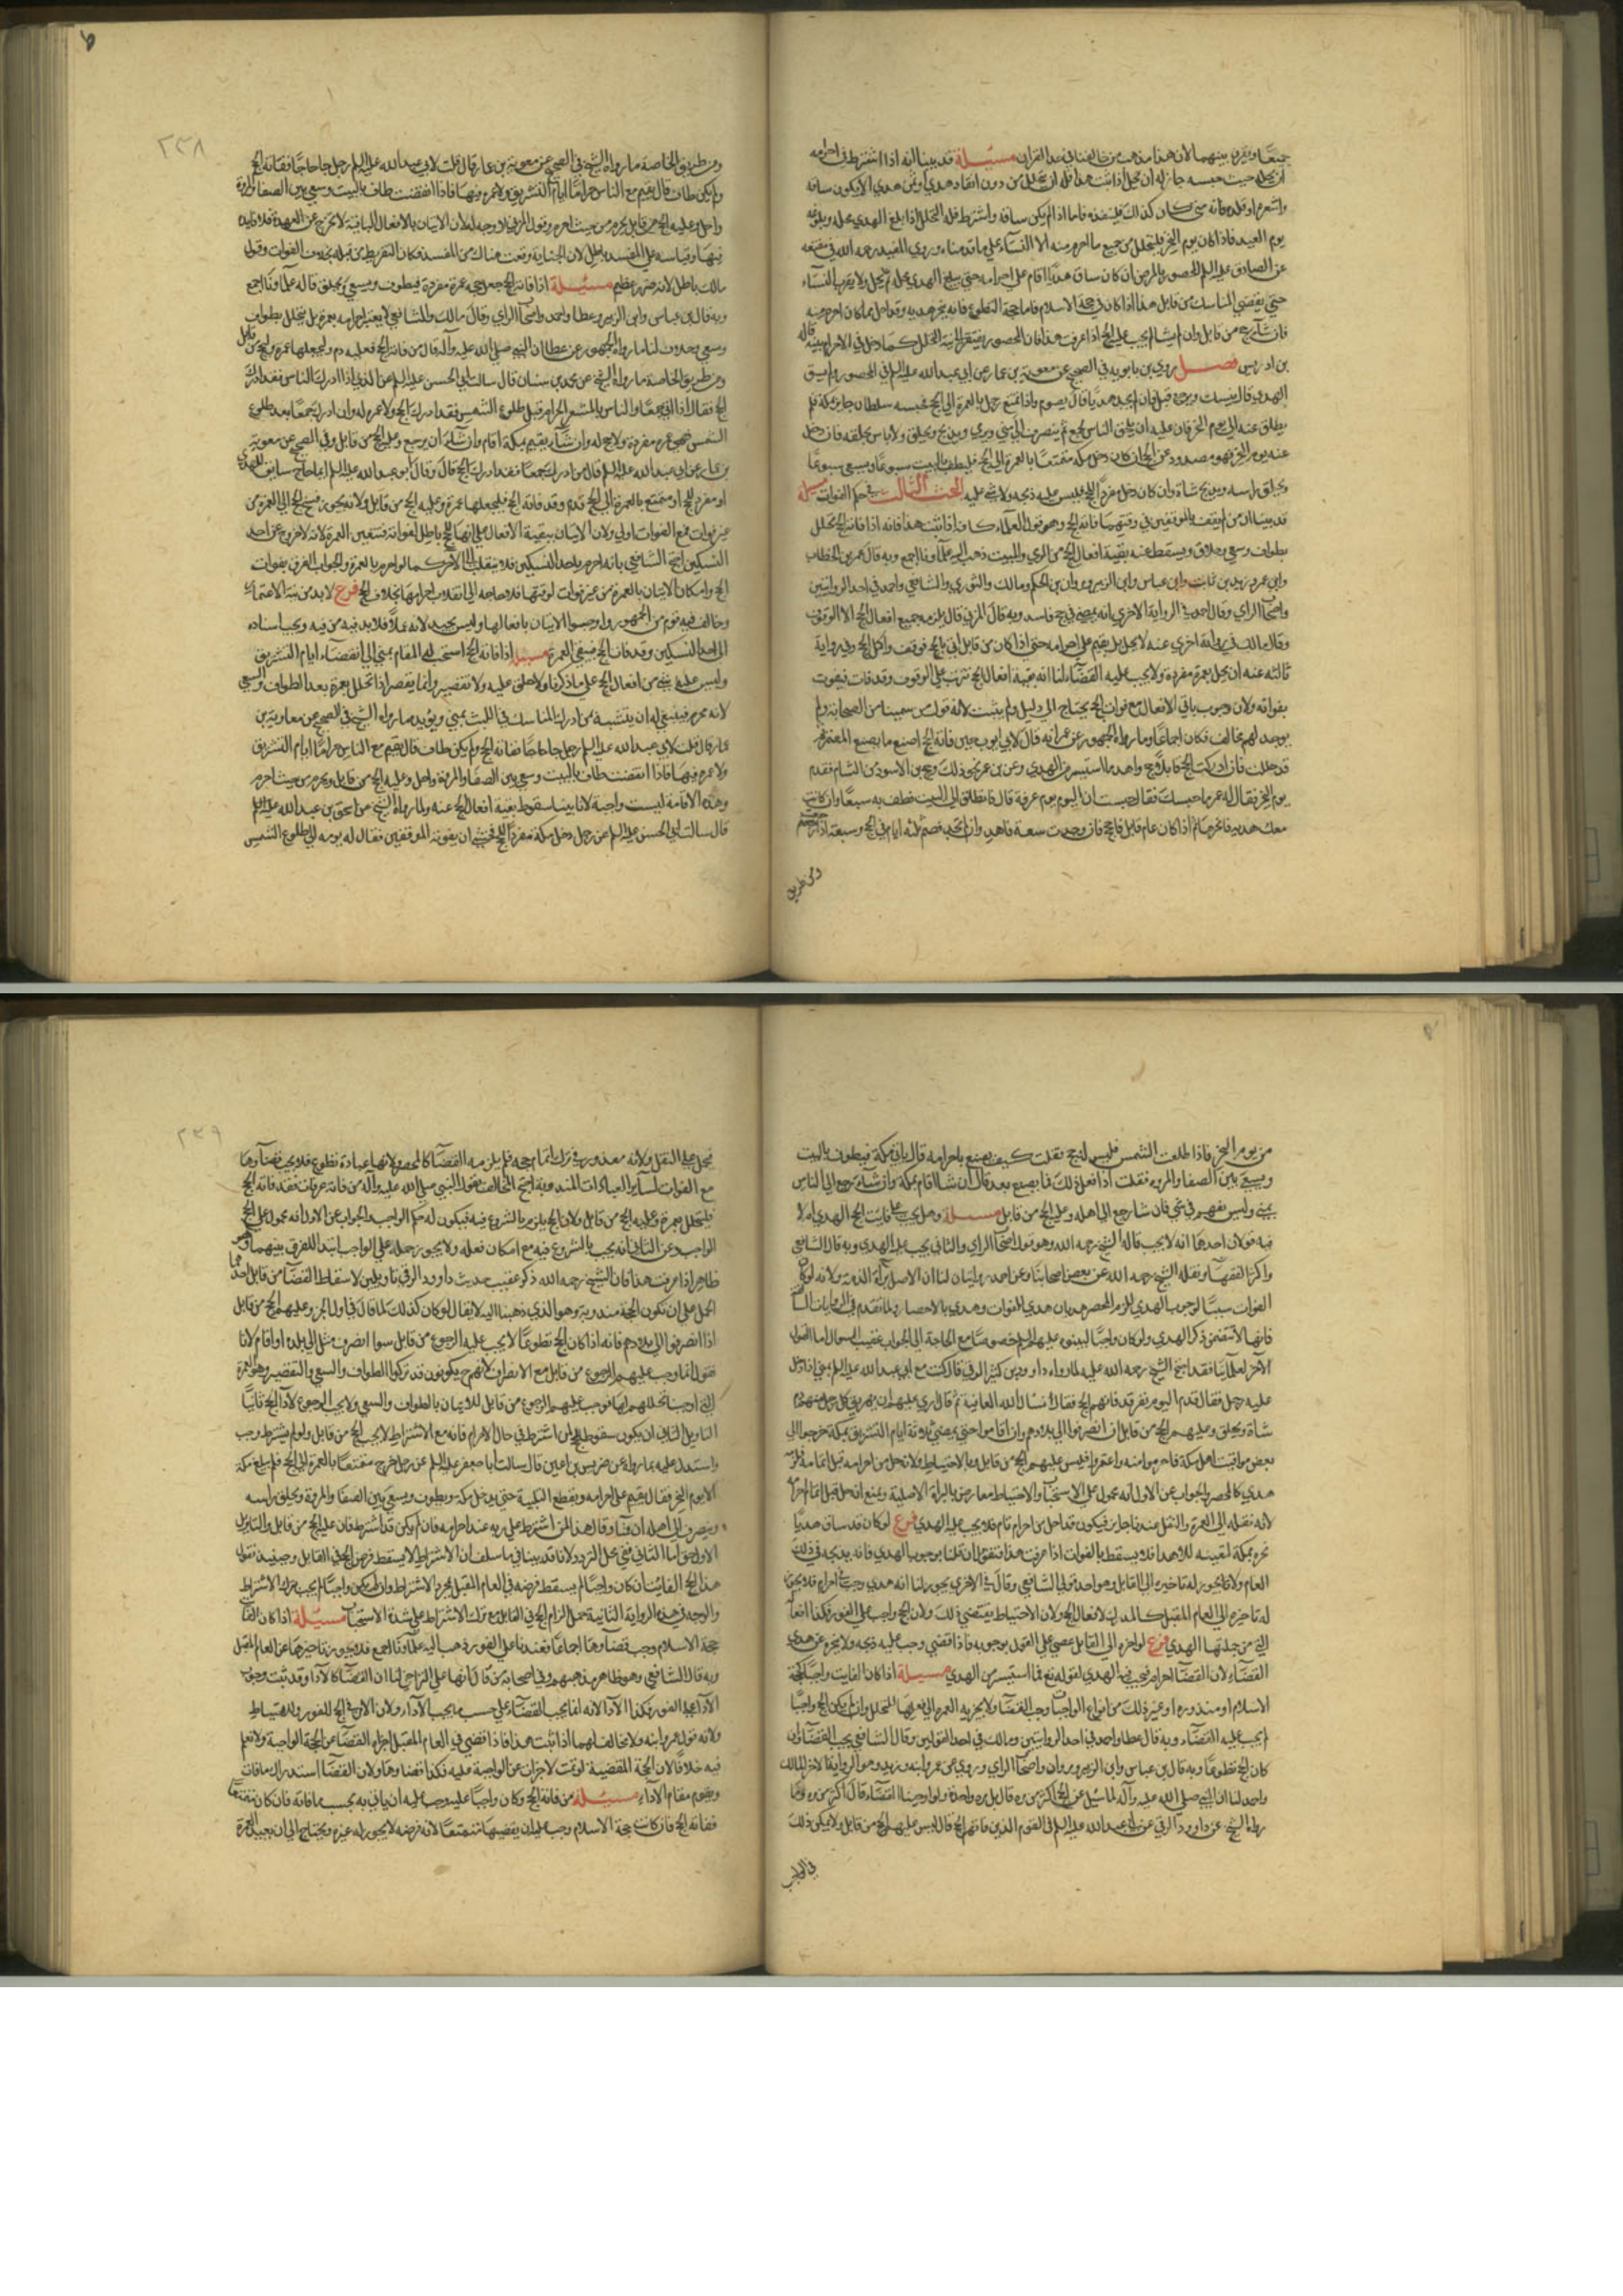 جميعا وفرق بينهما لان هذا مذهب من خالفنا في هذا القران مسئلة قد بينا انه اذا اشترط في احرامه
ان يحله حيث حبسه جاز له ان يحل اذا ثبت هذا فله ان يتحلل من دون انفاذ هدي او ثمن هدي الا يكون ساقه
واشعره او قلده فانه متى كان كذلك فلينفذه فاما اذا لم يكن ساقه واشترط فله التحلل اذا بلغ الهدي محله وبلوغه
يوم العيد فاذا كان يوم النحر فليتحلل من جميع ما احرم منه الا النساء على ما قدمناه وروى المفيد رحمه الله في مقنعه
عن الصادق عليه السلم المحصور بالمرض ان كان ساق هديا اقام على احرامه حتى يبلغ الهدي محله ثم يحل ولا يقرب النساء
حتى يقضي المناسك من قابل هذا اذا كان في حجة الاسلام فاما حجة التطوع فانه ينحر هديه وقد احل مما كان احرم منه
فان شاء حج من قابل وان لم يشا لم يجب عليه الحج اذا عرفت هذا فان المحصور يفتقر الى نية التحلل كما دخل في الاحرام بنية قاله
بن ادريس فصل روى بن بابويه في الصحيح عن معوية بن عمار عن ابي عبد الله عليه السلم في المحصور ولم يسق
الهدي قال ينسك ويرجع قيل فان لم يجد هديا قال يصوم واذا تمتع رجل بالعمرة الى الحج فحبسه سلطان جاير بمكة فلم
يطلق عنه الى يوم النحر فان عليه ان يلحق الناس بجمع ثم ينصرف الى منى ويرمي ويذبح ويحلق ولا شيء عليه فان خلى
عنه يوم النحر فهو مصدود عن الحج ان كان دخل مكة متمتعا بالعمرة الى الحج فليطف بالبيت سبوعا ويسعى سبوعا
ويحلق راسه ويذبح شاة وان كان دخل مفردا للحج فليس عليه ذبح ولا شيء عليه البحث الثالث في حكم الفوات مسئلة
قد بينا ان من لم يقف بالموقفين في وقتيهما فاته الحج وهو قول العلماء كافة اذا ثبت هذا فانه اذا فاته الحج تحلل
بطواف وسعي وحلاق ويسقط عنه بقية افعال الحج من الرمي والمبيت ذهب اليه علماؤنا اجمع وبه قال عمر بن الخطاب
وابن عمر وزيد بن ثابت وابن عباس وابن الزبير ومروان بن الحكم ومالك والثوري والشافعي واحمد في احدى الروايتين
واصحاب الراي وقال احمد في الرواية الاخرى انه يمضي في حج فاسد وبه قال المزني قال يلزمه جميع افعال الحج الا الوقوف
وقال مالك في رواية اخرى عنه لا يحل بل يقيم على احرامه حتى اذا كان من قابل اتى بالحج فوقف واكمل الحج وفي رواية
ثالثة عنه انه يحل بعمرة مفردة ولا يجب عليه القضاء لنا انه بقية افعال الحج تترتب على الوقوف وقد فات فيفوت
بفواته ولان وجوب باقي الافعال مع فوات الحج يحتاج الى دليل ولم يثبت لانه قول من سمينا من الصحابة ولم
يوجد لهم مخالف فكان اجماعا وما رواه الجمهور عن عمر انه قال لابي ايوب حين فاته الحج اصنع ما يصنع المعتمر ثم
قد حللت فان ادركت الحج قابلا فحج واهد ما استيسر من الهدي وعن بن عمر نحو ذلك وحج بن الاسود من الشام فقدم
يوم النحر فقال له عمر ما حبسك فقال حسبت ان اليوم يوم عرفة قال فانطلق الى البيت فطف به سبعا وان كانت
معك هدية فانحرها ثم اذا كان عام قابل فاحجج فان وجدت سعة فاهد وان لم تجد فصم ثلثة ايام في الحج وسبعة اذا رجعت
ومن طريق
٢٣٨
ومن طريق الخاصة ما رواه الشيخ في الصحيح عن معوية بن عمار قال قلت لابي عبد الله عليه السلم رجل جا حاجا ففاته الحج
ولم يكن طاف قال يقيم مع الناس حراما ايام التشريق ولا عمرة فيها فاذا انقضت طاف بالبيت وسعى بين الصفا والمروة
واحل وعليه الحج من قابل يحرم من حيث احرم وقول المزني لا وجه له لان الاتيان بالافعال الباقية لا يخرج عن العهدة فلا فايدة
فيها وقياسه على المفسد باطل لان الجناية وقعت هناك من المفسد فكان التفريط من قبله بخلاف الفوات وقول
مالك باطل لانه ضرر عظيم مسئلة اذا فاته الحج جعل حجه عمرة مفردة فيطوف ويسعى ويحلق قاله علماؤنا اجمع
وبه قال بن عباس وابن الزبير وعطا واحمد واصحاب الراي وقال مالك والشافعي لا يصير احرامه بعمرة بل يتحلل بطواف
وسعي وحلاق لنا ما رواه الجمهور عن عطا ان النبي صلى الله عليه وآله قال من فاته الحج فعليه دم وليجعلها عمرة وليحج من قابل
ومن طريق الخاصة ما رواه الشيخ عن محمد بن سنان قال سالت ابا الحسن عليه السلم عن الذي اذا ادرك الناس فقد ادرك
الحج فقال اذا اتى جمعا والناس بالمشعر الحرام قبل طلوع الشمس فقد ادرك الحج ولا عمرة له وان ادرك جمعا بعد طلوع
الشمس فهي عمرة مفردة ولا حج له وان شاء يقيم بمكة اقام وان شاء ان يرجع رجع وعليه الحج من قابل وفي الصحيح عن معوية
بن عمار عن ابي عبد الله عليه السلم قال من ادرك جمعا فقد ادرك الحج قال وقال ابو عبد الله عليه السلم ايما حاج سايق للهدي
او مفرد للحج او متمتع بالعمرة الى الحج قدم وقد فاته الحج فليجعلها عمرة وعليه الحج من قابل ولانه يجوز فسخ الحج الى العمرة من
غير فوات فمع الفوات اولى ولان الاتيان ببقية الافعال على انها للحج باطل لفواته فتتعين العمرة لانه لا خروج عن احد
النسكين احتج الشافعي بانه احرم باحد النسكين فلا ينقلب الى الاخر كما لو احرم بالعمرة والجواب الفرق بفوات
الحج وامكان الاتيان بالعمرة من غير فوات لوقتها فلا حاجة الى انقلاب احرامها بخلاف الحج فرع لا بد من نية الاعتمار
وخالف فيه قوم من الجمهور واوجبوا الاتيان بافعالها وليس بجيد لانه عملا فلا بد فيه من نية ويجب اسناده
الى احد النسكين وقد فات الحج فبقى العمرة مسئلة اذا فاته الحج استحب له المقام بمنى الى انقضاء ايام التشريق
وليس عليه شيء من افعال الحج على ما ذكرناه ولا حلق عليه ولا تقصير وانما يقصر اذا تحلل بعمرة بعد الطواف والسعي
لانه محرم فينبغي له ان يتشبه بمن ادرك المناسك في اللبث بمنى ويؤيده ما رواه الشيخ في الصحيح عن معاوية بن
عمار قال قلت لابي عبد الله عليه السلم رجل جا حاجا ففاته الحج ولم يكن طاف قال يقيم مع الناس حراما ايام التشريق
ولا عمرة فيها فاذا انقضت طاف بالبيت وسعى بين الصفا والمروة واحل وعليه الحج من قابل ويحرم من حيث احرم
وهذه الاقامة ليست واجبة لانا بينا سقوط بقية افعال الحج عنه ولما رواه الشيخ عن اسحق بن عبد الله عليه السلم
قال سالت ابي الحسن عليه السلم عن رجل دخل مكة مفردا للحج فخشي ان يفوته الموقفين فقال له يومه الى طلوع الشمس
من يوم النحر فاذا طلعت الشمس فليس له حج فقلت كيف يصنع باحرامه قال ياتي مكة فيطوف بالبيت
ويسعى بين الصفا والمروة فقلت اذا فعل ذلك فما يصنع بعد قال ان شا اقام بمكة وان شاء رجع الى الناس
بمنى وليس منهم في شيء فان شا رجع الى اهله وعليه الحج من قابل مسئلة وهل يجب على فايت الحج الهدي ام لا
فيه قولان احدهما انه لا يجب قاله الشيخ رحمه الله وهو قول اصحاب الراي والثاني يجب عليه الهدي وبه قال الشافعي
واكثر الفقهاء ونقله الشيخ رحمه الله عن بعض اصحابنا وعن احمد روايتان لنا ان الاصل براءة الذمة ولانه لو كان
الفوات سببا لوجوب الهدي للزم المحصر هديان هدي للفوات وهدي بالاحصار
فانها لا تتضمن ذكر الهدي ولو كان واجبا لبينوه عليهم السلم خصوصا مع الحاجة الى الجواب عقيب السوال اما القول
الآخر لعلمائنا فقد احتج الشيخ رحمه الله عليه لما رواه داوود بن كثير الرقي قال كنت مع ابي عبد الله عليه السلم بمنى اذ دخل
عليه رجل فقال قدم اليوم نفر قد فاتهم الحج فقال نسال الله العافية ثم قال ارى عليهم ان يهريق كل رجل منهم دم
شاة ويحلق وعليهم الحج من قابل ان انصرفوا الى بلادهم وان اقاموا حتى يمضي ثلاثة ايام التشريق بمكة خرجوا الى
بعض مواقيت اهل مكة فاحرموا منه واعتمروا فليس عليهم الحج من قابل وبالاحتياط ولانه حل من احرامه قبل اتمامه فلزمه
هدي كالمحصر والجواب عن الاول انه محمول على الاستحباب والاحتياط معارض بالبراءة الاصلية ويمنع انه حل قبل اتمام احرامه
لانه نقله الى العمرة فلا يجب عليه الهدي فرع لو كان قد ساق هديا
نحره بمكة لتعينه للاهدا فلا يسقط بالفوات اذا عرفت هذا فنقول ان قلنا بوجوب الهدي فانه يذبحه في ذلك
العام ولا يجوز له تاخيره الى القابل وهو احد قولي الشافعي وقال في الاخرى يجوز لنا انه هدي وجب في احرام فلا يجوز
له تاخيره الى العام المقبل ولان الاحتياط يقتضي ذلك ولان الحج واجب على الفور فكذا افعاله
التي من جملتها الهدي فرع لو اخره الى القابل عصى على القول بوجوبه فاذا قضى وجب عليه ذبحه ولا يجزيه عن هدي
القضاء لان القضاء احرام يجب فيه الهدي لقوله تع فما استيسر من الهدي مسئلة اذا كان الفايت واجبا كحجة
الاسلام او منذورة او غير ذلك من انواع الواجبات وجب القضاء ولا يجزيه العمرة التي فعلها للتحلل وان لم يكن الحج واجبا
لم يجب عليه القضاء وبه قال عطا واحمد في احدى الروايتين ومالك في احد القولين وقال الشافعي يجب القضاء وان
كان الحج تطوعا وبه قال بن عباس وابن الزبير ومروان واصحاب الراي وروي عن عمر وابنه وزيد وهو الرواية الاخرى لمالك
واحمد لنا ان النبي صلى الله عليه وآله لما سئل عن الحج اكثر من مرة قال بل مرة واحدة ولو اوجبنا القضاء كان اكثر من مرة وما
رواه الشيخ عن داوود الرقي عن ابي عبد الله عليه السلم في القوم الذين فاتهم الحج قال ليس عليهم الحج من قابل ولا يمكن ذلك
في الواجب
٢٣٩
فيحمل على النفل ولانه معذور في ترك اتمام حجه فلم يلزمه القضاء كالمحصر ولانها عبادة تطوع فلا يجب قضاؤها
مع الفوات كساير العبادات المندوبة احتج المخالف بقول النبي صلى الله عليه وآله من فاته عرفات فقد فاته الحج
فليتحلل بعمرة وعليه الحج من قابل ولان الحج يلزم بالشروع فيه فيكون له حكم الواجب والجواب عن الاول انه محمول على الحج
الواجب وعن الثاني انه يجب بالشروع فيه مع امكان فعله ولا يجوز حمله على الواجب ابتدا للفرق بينهما وهو
ظاهر اذا عرفت هذا فان الشيخ رحمه الله ذكر عقيب حديث داوود الرقي تاويلين لاسقاط القضاء من قابل احدهما
الحمل على ان تكون الحجة مندوبة وهو الذي ذهبنا اليه لا يقال لو كان كذلك لما قال في اول الخبر وعليهم الحج من قابل
اذا انصرفوا الى بلادهم فانه اذا كان الحج تطوعا لا يجب عليه الرجوع من قابل سوا انصرف الى بلده او اقام لانا
نقول انما وجب عليهم الرجوع من قابل مع الانصراف لانهم ح يكونون قد تركوا الطواف والسعي والتقصير وهو العمرة
التي اوجبنا تحللهم بها فوجب عليهم الرجوع من قابل للاتيان بالطواف والسعي ولا يجب الرجوع لاداء الحج ثانيا
التاويل الثاني ان يكون سقوط الحج لمن اشترط في حال الاحرام فانه مع الاشتراط لا يجب الحج من قابل ولو لم يشترط وجب
واستدل عليه بما رواه عن ضريس بن اعين قال سالت ابا جعفر عليه السلم عن رجل خرج متمتعا بالعمرة الى الحج فلم يبلغ مكة
الا يوم النحر فقال يقيم على احرامه ويقطع التلبية حتى يدخل مكة ويطوف ويسعى بين الصفا والمروة ويحلق راسه
وينصرف الى اهله ان شاء وقال هذا لمن اشترط على ربه عند احرامه فان لم يكن قد اشترط فان عليه الحج من قابل والتاويل
الاول حق اما الثاني ففي محل التردد لانا قد بينا في ما سلف ان الاشتراط لا يسقط فرض الحج في القابل وحينئذ نقول
هذا الحج الفايت ان كان واجبا لم يسقط فرضه في العام المقبل بمجرد الاشتراط وان لم يكن واجبا لم يجب بترك الاشتراط
والوجه في هذه الرواية الثانية حمل الزام الحج في القابل مع ترك الاشتراط على شدة الاستحباب مسئلة اذا كان الفايت
حجة الاسلام وجب قضاؤها اجماعا وعندنا على الفور ذهب اليه علماؤنا اجمع فلا يجوز تاخيرها عن العام المقبل
وبه قال الشافعي وهو ظاهر مذهبهم وفي اصحابه من قال انها على التراخي لنا ان القضاء كالاداء وقد ثبت وجوب
الاداء على الفور فكذا القضاء لانه انما يجب القضاء على حسب ما يجب الاداء ولان الامر بالحج للفور وللاحتياط
ولانه قول عمر وابنه ولا مخالف لهما اذا ثبت هذا فاذا قضى في العام المقبل اجزاه القضاء عن الحجة الواجبة ولا نعلم
فيه خلافا لان الحجة المقضية لو تمت لاجزات عن الواجبة عليه فكذا قضاؤها ولان القضاء استدراك ما فات
ويقوم مقام الاداء مسئلة من فاته الحج وكان واجبا عليه وجب عليه ان ياتي به بحسب ما فاته فان كان متمتعا
ففاته الحج فان كانت حجة الاسلام وجب عليه ان يقضيها متمتعا لانه فرضه لا يجوز له غيره ويحتاج الى ان يعيد العمرة